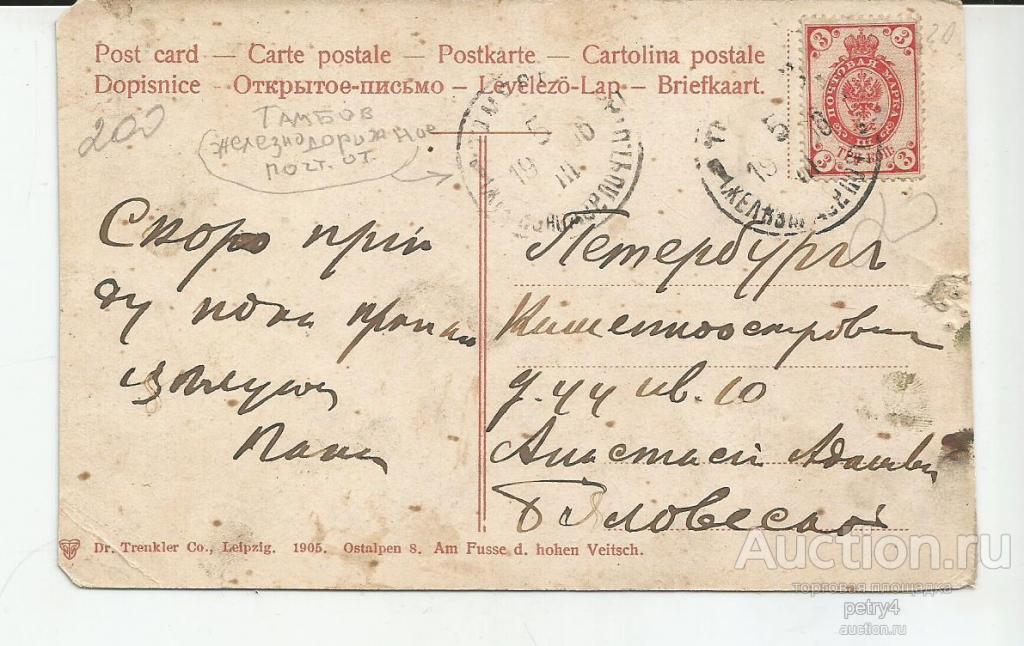 Post card — Carte postale — Postkarte — Cartolina postale
Dopisnice — Открытое-письмо — Levelező-Lap — Briefkaart.
200
Тамбов
железнодорожное
почт. от.
19 5 III 06
3 3
ПОЧТОВАЯ МАРКА
ТРИ КОП.
3 3
Скоро прій
ду пока
цѣлую
Петербургъ
Каменноостровск
д. 44 кв. 10
Анастасіи
Бѣловеской
Dr. Trenkler Co., Leipzig. 1905. Ostalpen 8. Am Fusse d. hohen Veitsch.
Auction.ru
торговая площадка
petry4
auction.ru